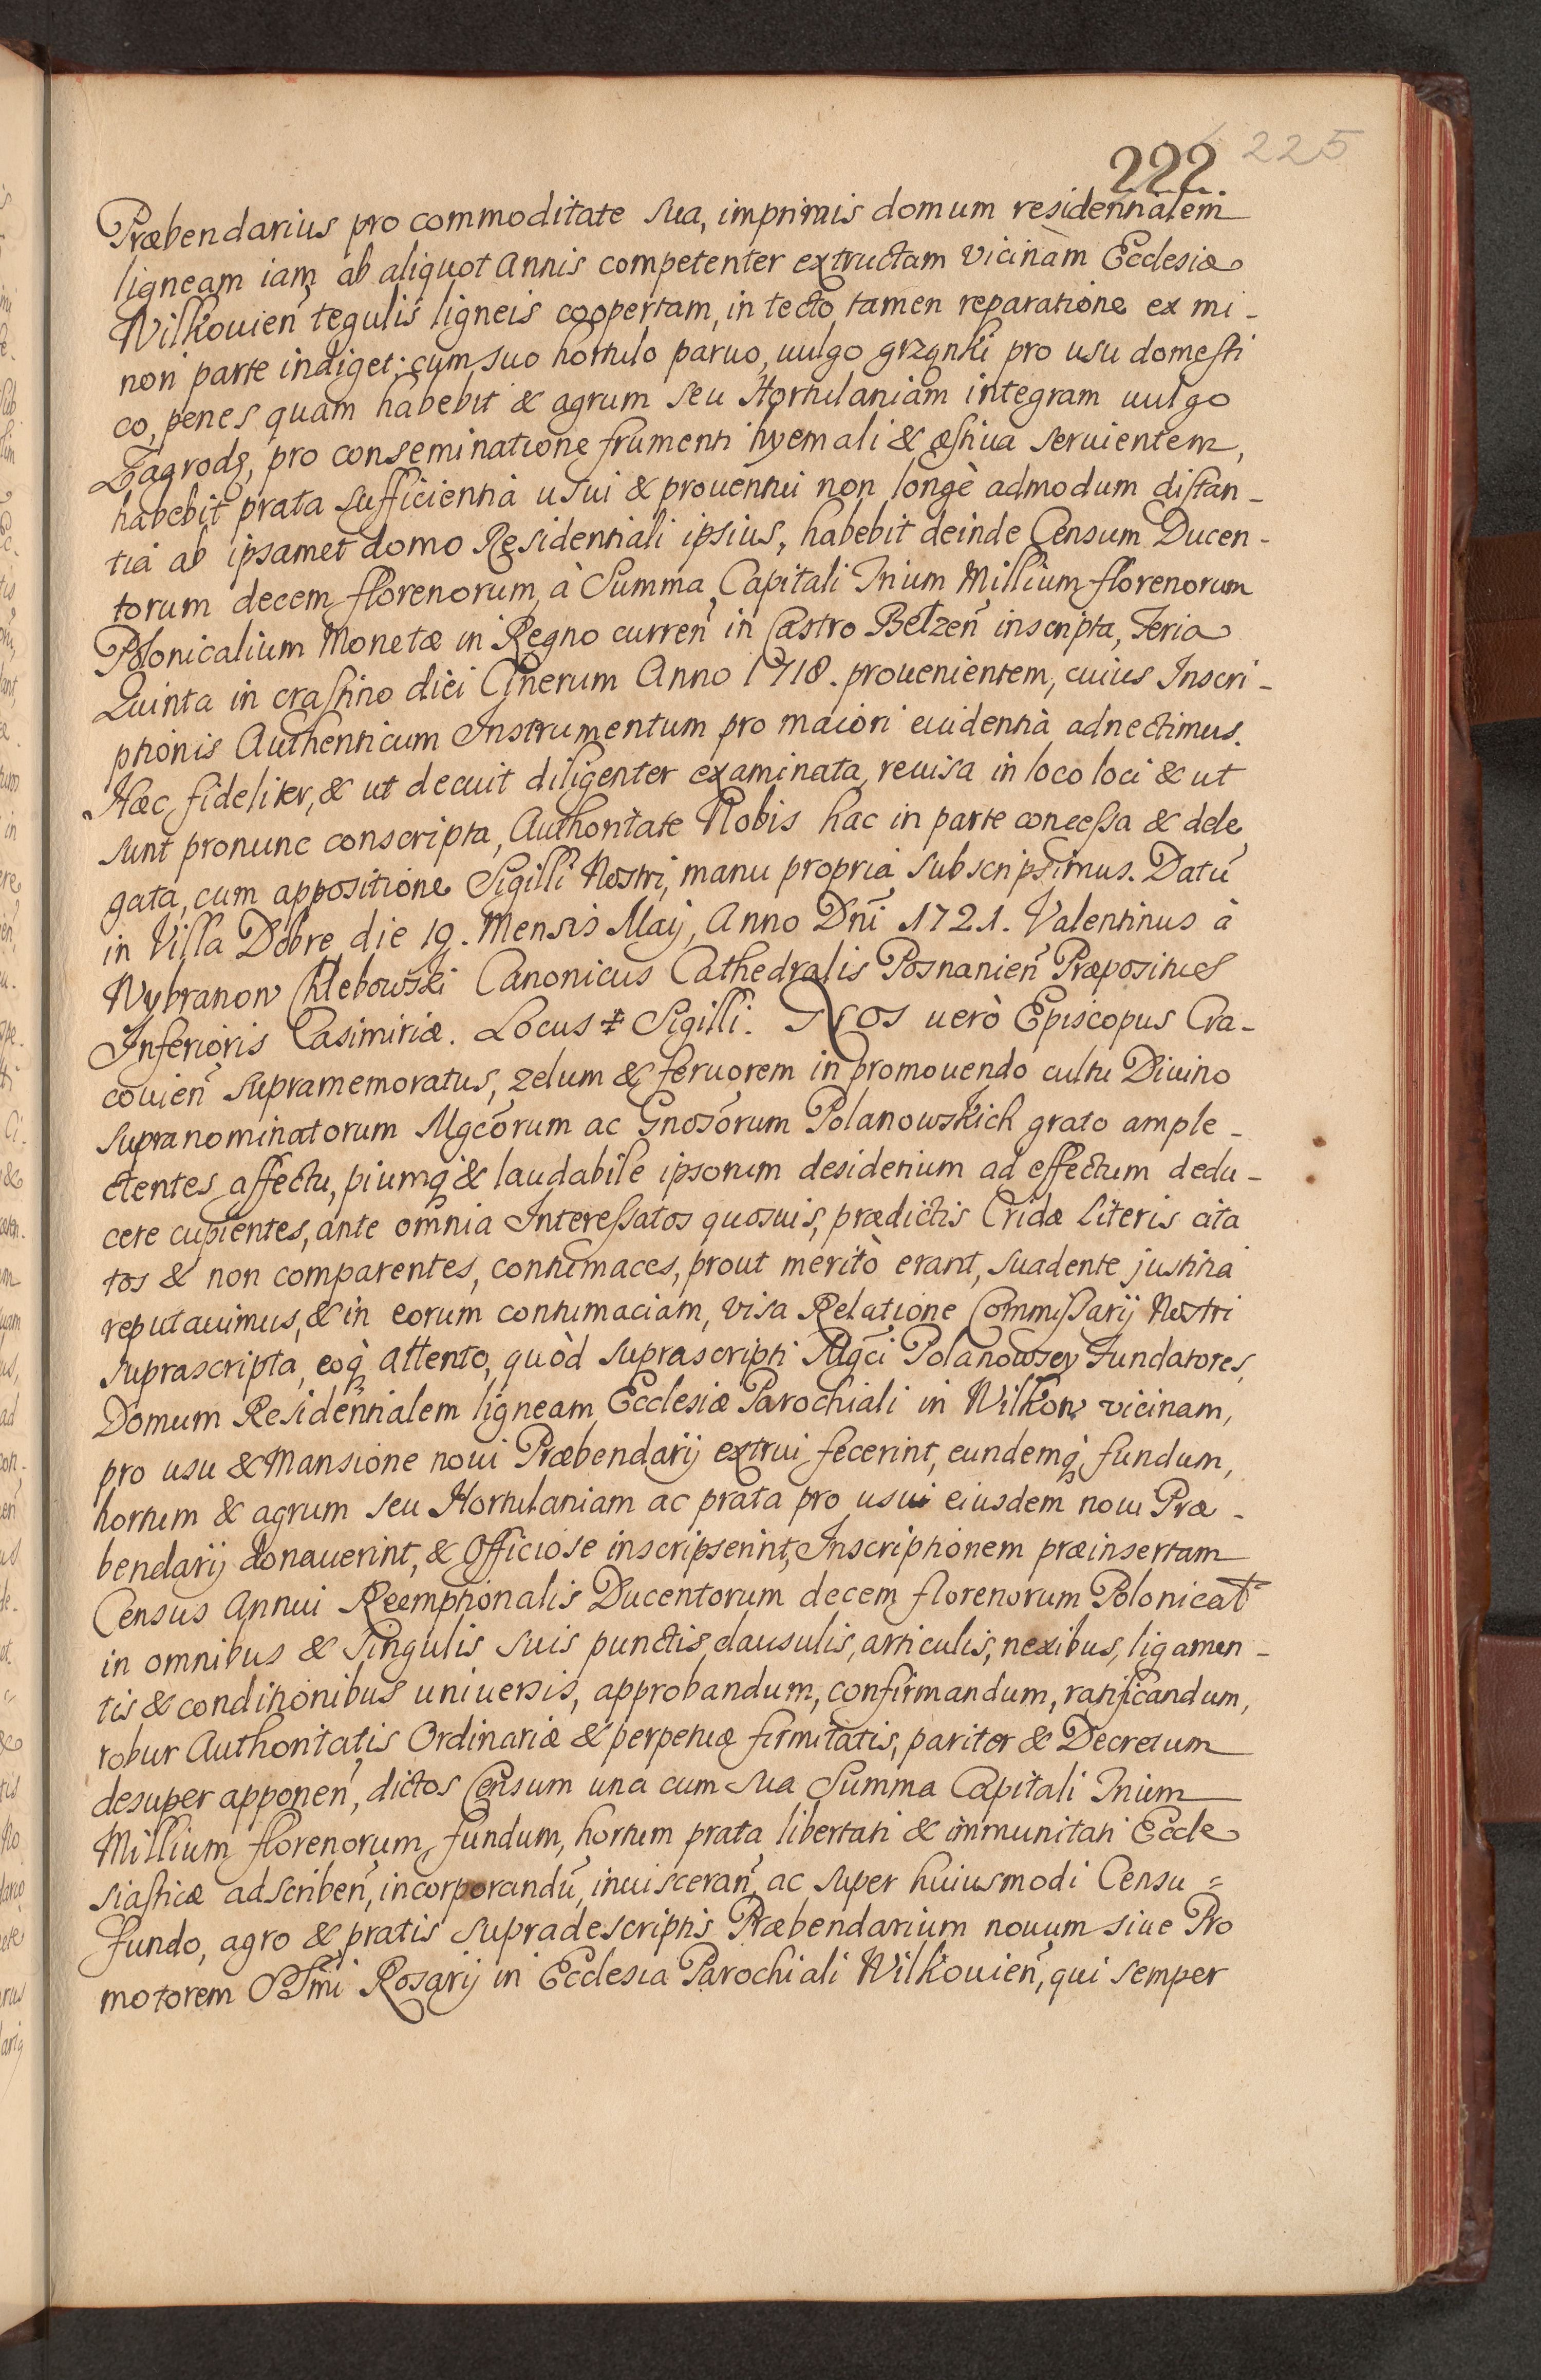 222. 225
Præbendarius pro commoditate sua, imprimis domum residentialem
ligneam iam ab aliquot Annis competenter extructam vicinàm Ecclesiæ
Wilkouien̄ tegulis ligneis coopertam, in tecto tamen reparatione ex mi-
nori parte indiget: cum suo hortulo paruo, uulgo grzqnki pro usu domesti
co, penes quam habebit & agrum seu Hortulaniam integram uulgo
Zagrodę, pro conseminatione frumenti hyemali & æstiua seruientem,
habebit prata sufficientia usui & prouentui non longè admodum distan-
tia ab ipsamet domo Residentiali ipsius, habebit deinde Censum Ducen-
torum decem florenorum à Summa Capitali Trium Millium florenorum
Polonicalium Monetæ in Regno curren̄ in Castro Belzen̄ inscripta, Feria
Quinta in crastino diei Cinerum Anno 1718. prouenientem, cuius Inscri-
ptionis Authenticum Instrumentum pro maiori euidentià adnectimus.
Hæc fideliter, & ut decuit diligenter examinata, reuisa in loco loci & ut
sunt pronunc conscripta, Authoritate Nobis hac in parte concessa & dele
gata, cum appositione Sigilli Nostri, manu propria subscripsimus. Datū
in Villa Dobre die 19. Mensis Maij, Anno Dn̄i 1721. Valentinus à
Wybranow Chlebowski Canonicus Cathedralis Posnanien̄ Præpositus
Inferioris Casimiriæ. Locus ‡ Sigilli. Nos uerò Episcopus Cra-
couien̄ supramemoratus, zelum & feruorem in promouendo cultu Diuino
supranominatorum Mgcōrum ac Gnosōrum Polanowskich grato ample-
ctentes affectu, piumq̀ & laudabile ipsorum desiderium ad effectum dedu-
cere cupientes, ante om̄nia Interessatos quosuis, prædictis Cridæ Literis cita
tos & non comparentes, contumaces, prout meritò erant, suadente justitia
reputauimus, & in eorum contumaciam, visa Relatione Commissarij Nostri
suprascripta, eoq̀ attento, quòd suprascripti Mgc̄i Polanowscy Fundatores,
Domum Residentialem ligneam Ecclesiæ Parochiali in Wilkow vicinam,
pro usu & Mansione noui Præbendarij extrui fecerint, eundemq̀ fundum,
hortum & agrum seu Hortulaniam ac prata pro usui eiusdem noui Præ-
bendarij donauerint, & Officiose inscripserint, Inscriptionem præinsertam
Census Annui Reemptionalis Ducentorum decem florenorum Polonical
in omnibus & Singulis suis punctis, clausulis, articulis, nexibus, ligamen-
tis & conditionibus uniuersis, approbandum, confirmandum, ratificandum,
robur Authoritatis Ordinariæ & perpetuæ firmitatis, pariter & Decretum
desuper apponen̄, dictos Censum una cum sua Summa Capitali Trium
Millium florenorum, fundum, hortum prata libertati & immunitati Eccle
siasticæ adscriben̄, incorporandū, inuisceran̄, ac super huiusmodi Censu =
fundo, agro & pratis supradescriptis Præbendarium nouum siue Pro
motorem SSm̄i Rosarij in Ecclesia Parochiali Wilkouien̄, qui semper